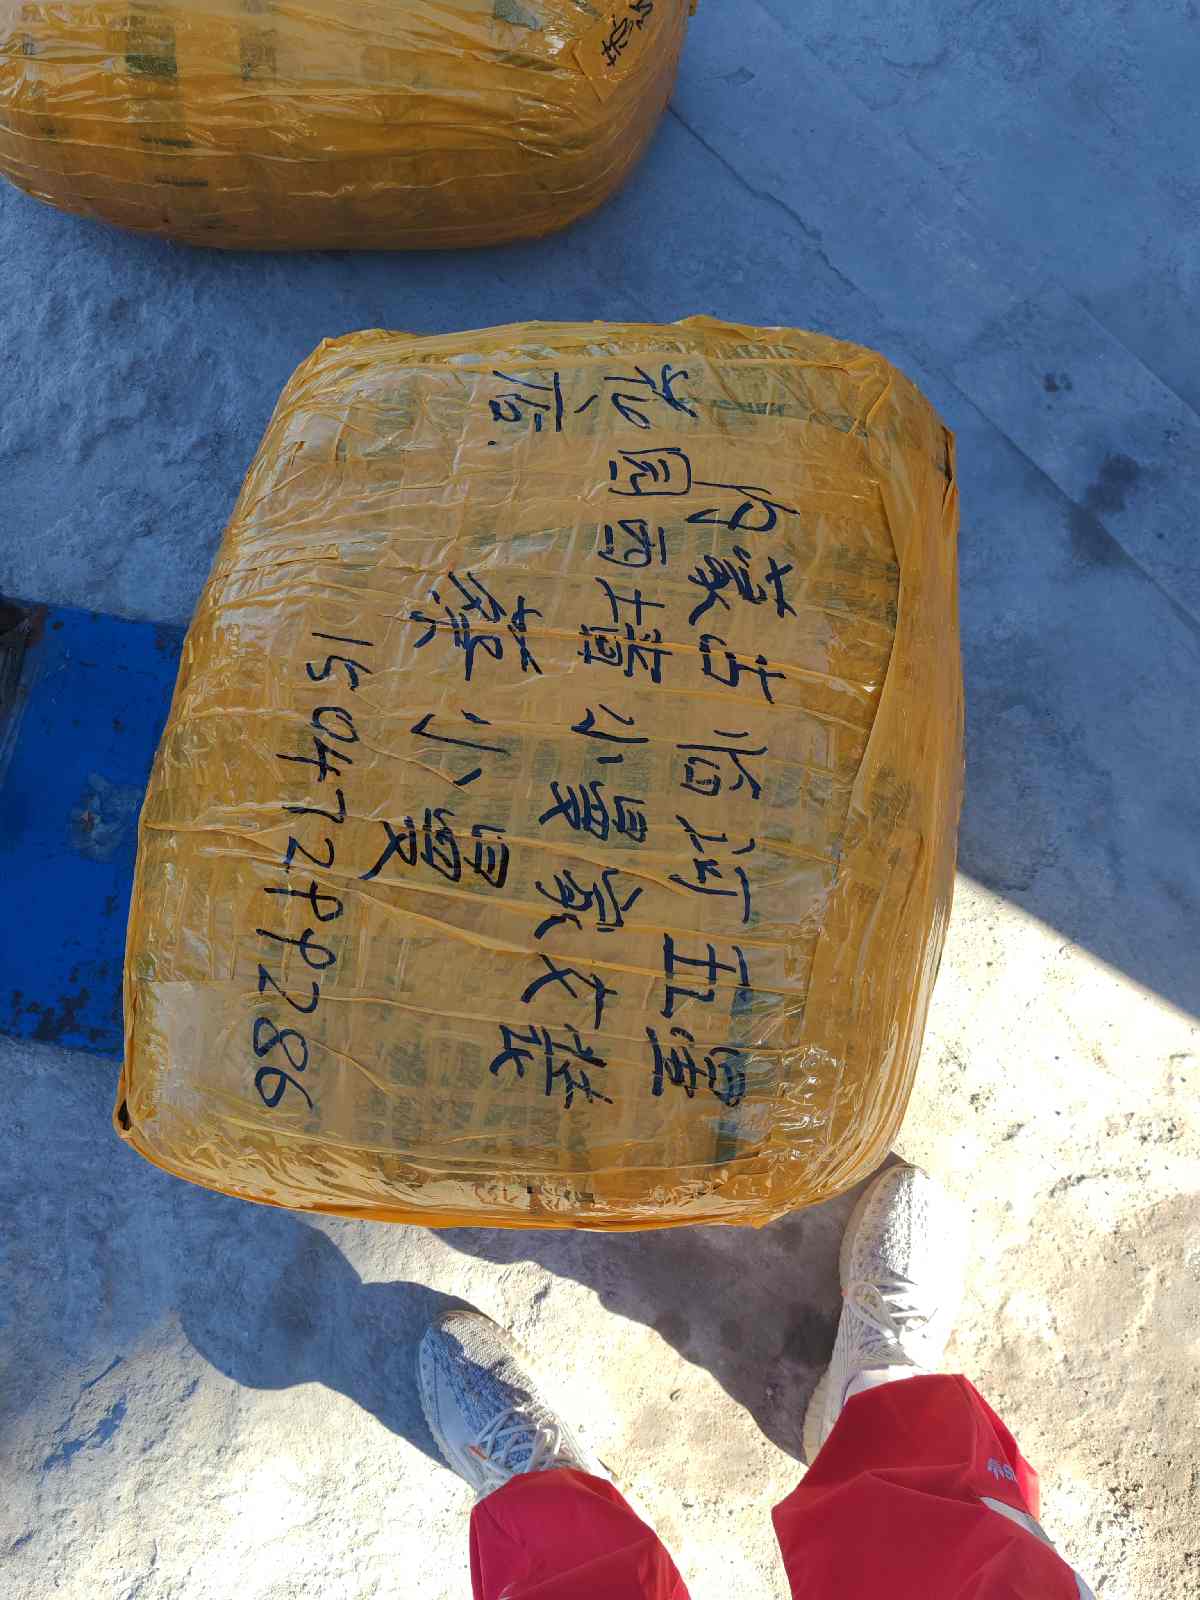 内蒙古 临河 五星
花园西墙 小曼家女装
店.
蔡小曼
15047299286